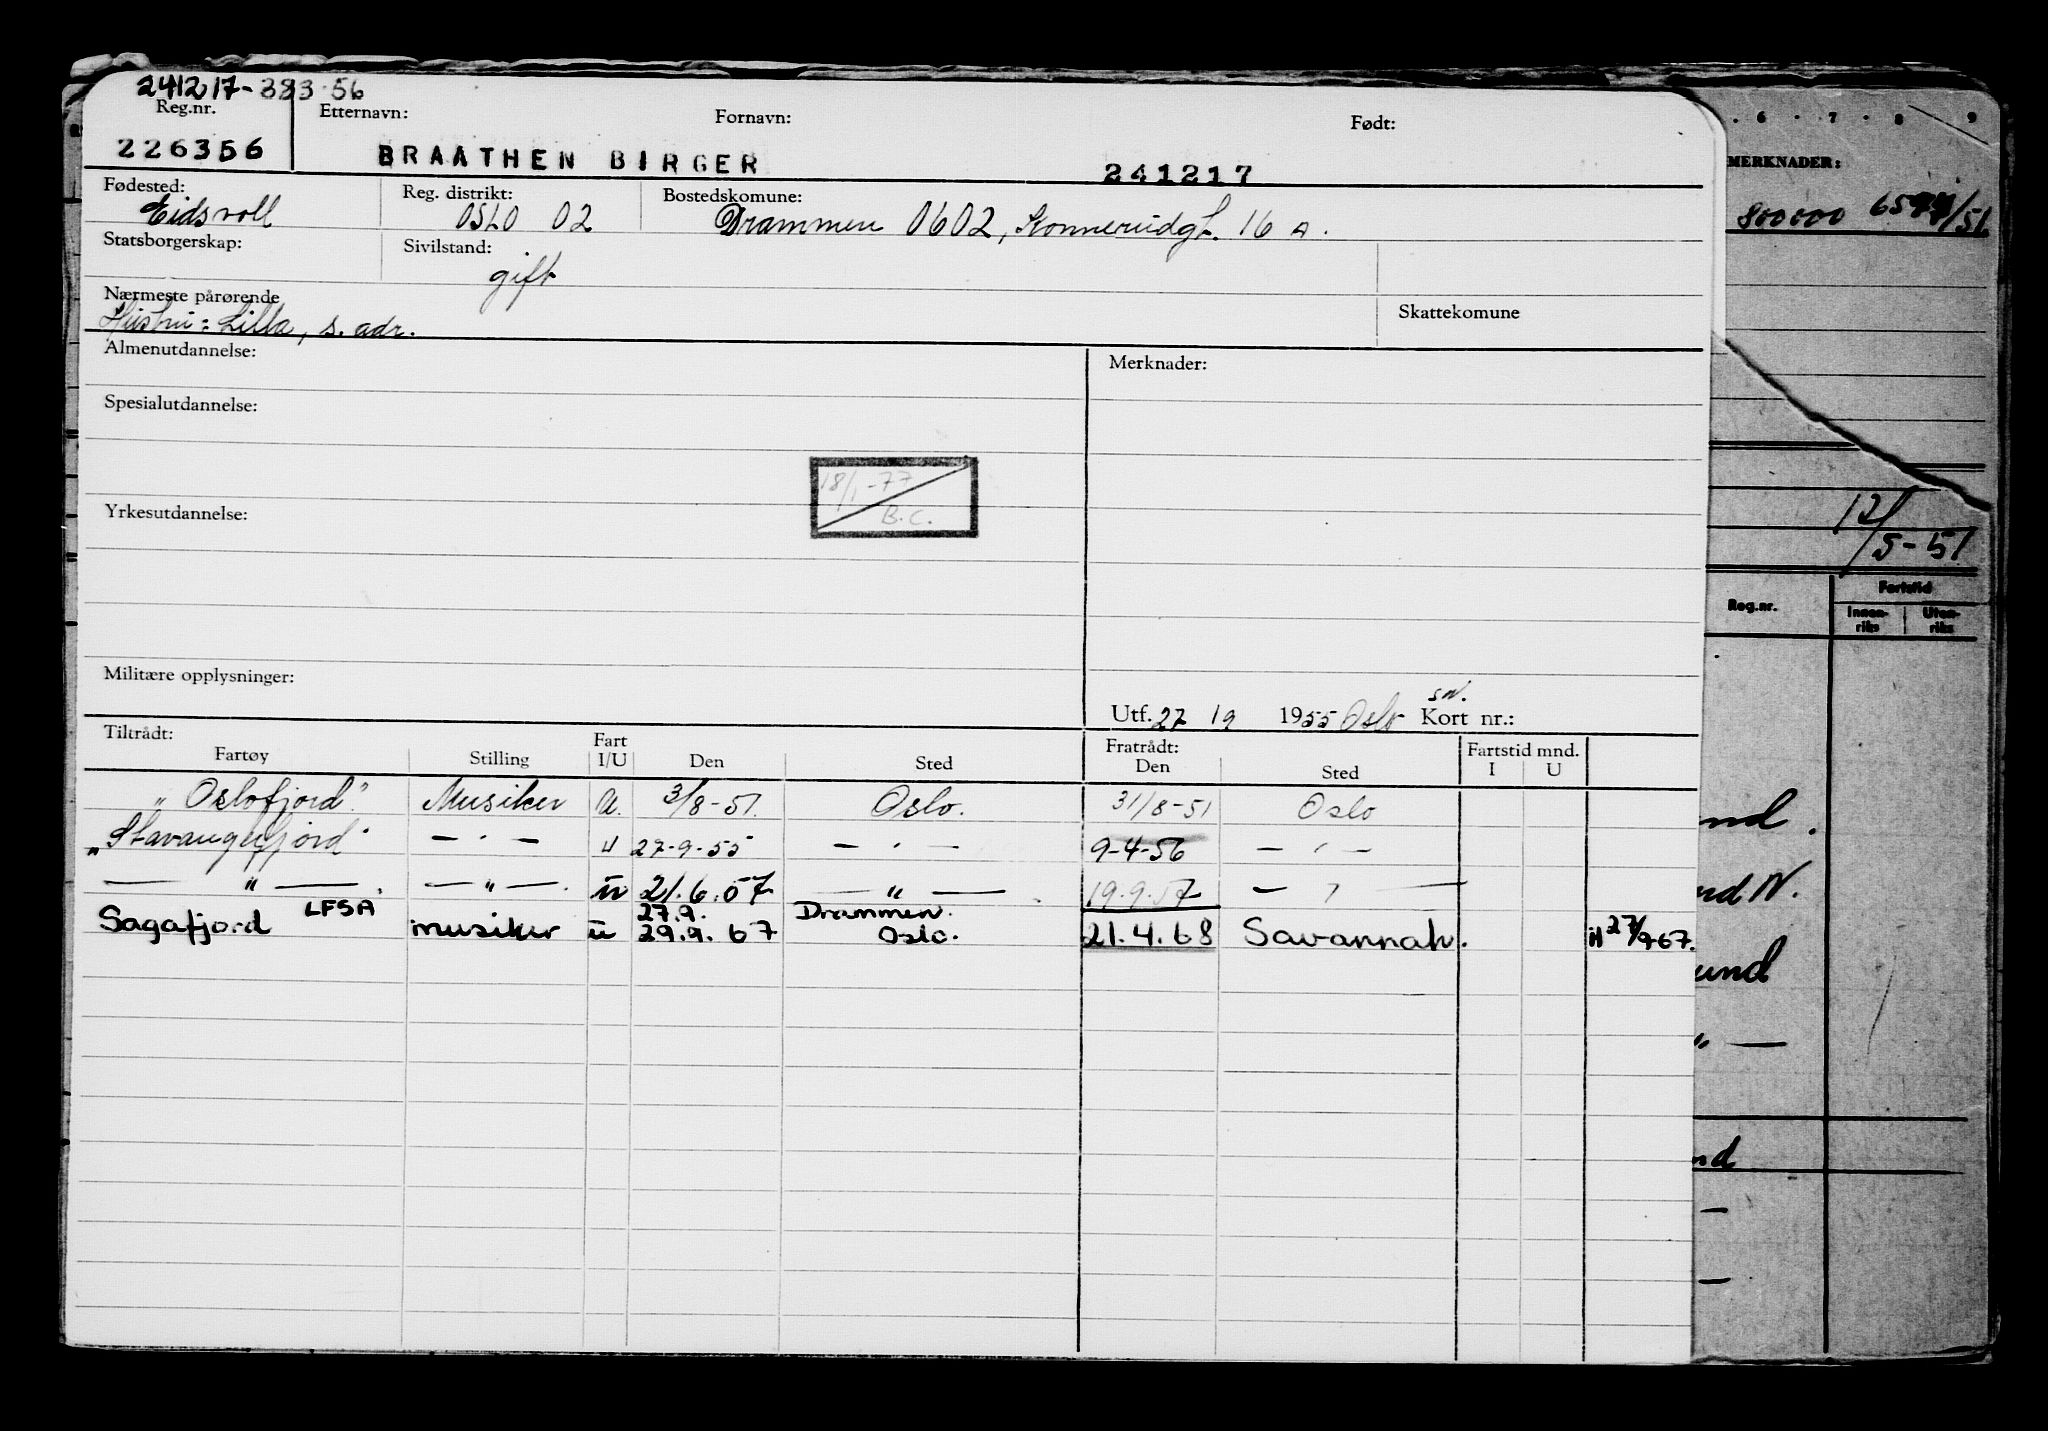 241217-383 56
Reg.nr. Etternavn: Fornavn: Født:
226356 BRAATHEN BIRGER 241217
Fødested: Reg. distrikt: Bostedskomune:
Eidsvoll OSLO 02 Drammen 0602, Konnerudgt. 16 A.
Statsborgerskap: Sivilstand:
gift
Nærmeste pårørende Skattekomune
Hustru: Lilla, s. adr.
Almenutdannelse: Merknader:
Spesialutdannelse:
18/1-77
B.C.
Yrkesutdannelse:
Militære opplysninger:
Utf. 27 / 9 1955 Oslo Kort nr.:
Tiltrådt: Fratrådt: Fartstid mnd.
Fartøy Stilling Fart I/U Den Sted Den Sted I U
"Oslofjord" Musiker U. 3/8-51. Oslo. 31/8-51 Oslo
"Stavangerfjord" — " — U 27-9-55 — " — 9-4-56 — " —
— " — . — " — . U 21.6.57 — " — . 19.9.57 — " —
LFSA 27.9. Drammen.
Sagafjord musiker U 29.9.67 Oslo. 21.4.68 Savannah. 27/9-67.
6 7 8 9
MERKNADER:
800000
12/5-51
Reg.nr. Fartstid
Innen-riks Uten-riks
nd.
nd N.
und
" —
nd
—
—